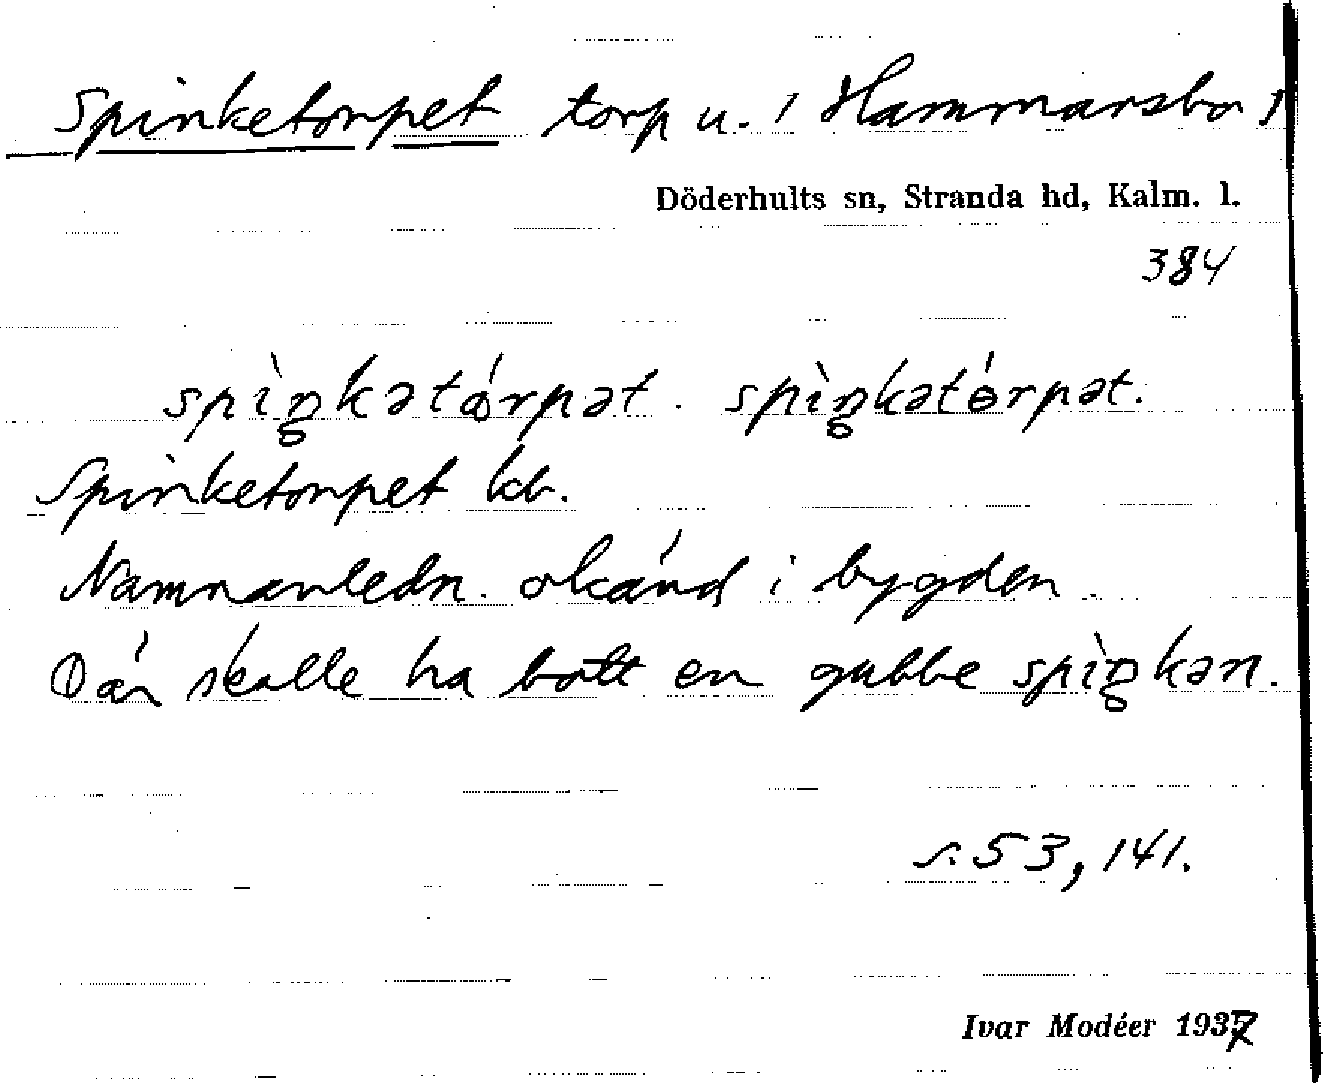 Spinketorpet torp u. 1 Hammarsbo 1
Döderhults sn, Stranda hd, Kalm. l.
384
spìŋkətórpət. spìŋkətórpət.
Spinketorpet kb.
Namnanledn. okänd i bygden
Där skalle ha bott en gubbe spìŋkən.
s. 53, 141.
Ivar Modéer 1937